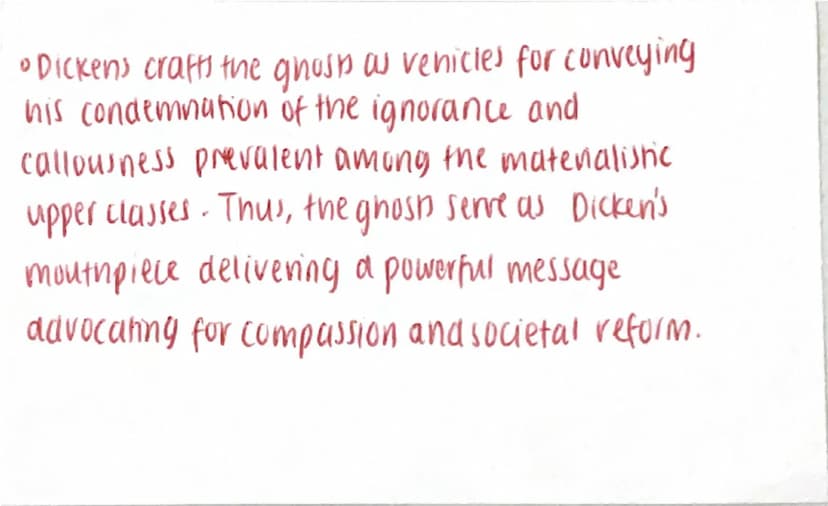 • Dickens crafts the ghosts as vehicles for conveying
his condemnation of the ignorance and
callousness prevalent among the materialistic
upper classes. Thus, the ghosts serve as Dicken's
mouthpiece delivering a powerful message
advocating for compassion and societal reform.